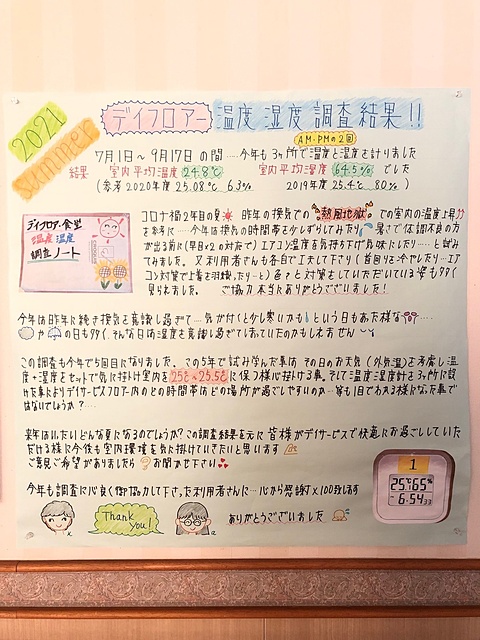 2021
summer
デイフロアー 温度 湿度 調査結果!!
AM・PMの2回
7月1日〜9月17日 の間……今年も3ヶ所で温度と湿度を計りました
結果 室内平均温度 24.8℃ 室内平均湿度 64.5% でした
(参考 2020年度 25.08℃ 63% 2019年度 25.4℃ 80%)
デイフロアー・食堂
温度 湿度
調査ノート
コロナ禍2年目の夏 昨年の換気での "熱風地獄" での室内の温度上昇
を参考に…今年は換気の時間帯を少しずらしてみたり 暑さで体調不良の方
が出る前に(早目の対応で)エアコン温度を気持ち下げ気味にしたり……と試み
てみました。又利用者さんも各自で工夫して下さり(首回りを冷やしたり…エア
コン対策で上着を羽織ったり…と)色々と対策をしていただいている姿も多く
見られました。 ご協力本当にありがとうございました!
今年は昨年に続き換気を意識し過ぎて……気が付くと少し寒いかも という日もあった様な…
や の日も多く、そんな日は湿度を意識し過ぎてしまっていたのかもしれません
この調査も今年で5回目になりました。この5年で試み学んだ事は その日のお天気(外気温)を考慮し温
度・湿度をセットで気に掛け室内を25℃〜25.5℃に保つ様心掛ける事。そして温度湿度計を3ヶ所に設
けた事によりデイサービスフロアー内のどの時間帯はどの場所が過ごしやすいのか…等も1目でわかる様になった事で
はないでしょうか?…
来年はいったいどんな夏になるのでしょうか?この調査結果を元に 皆様がデイサービスで快適にお過ごししていた
だける様に今後も室内環境を気に掛けていきたいと思います
ご意見ご希望がありましたら お聞かせ下さい
今年も調査に心良く御協力して下さった利用者さんに…心から感謝×100致します
Thank you!
ありがとうございました
1
25℃ 65%
6:54 33